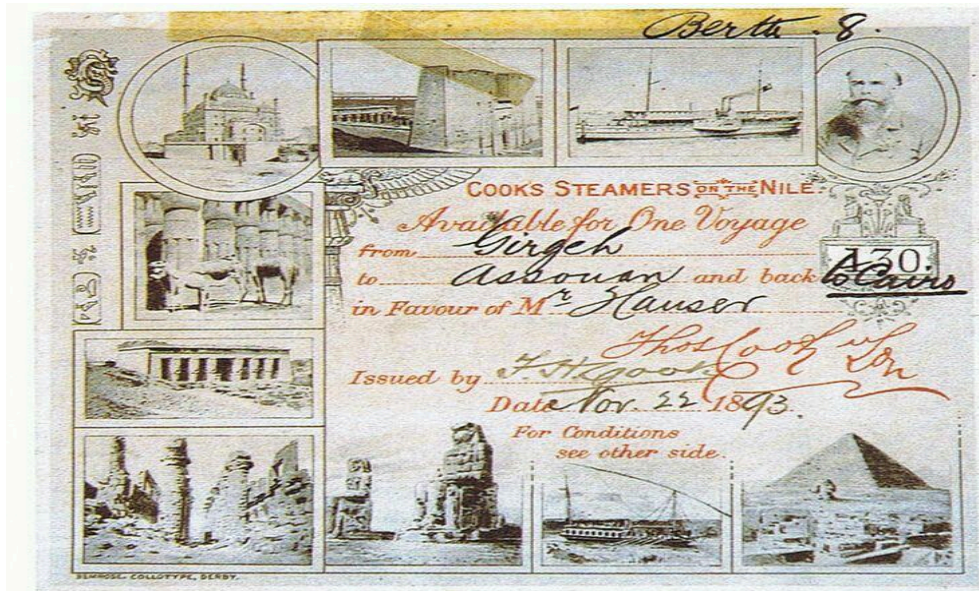 Berth. 8.
COOK'S STEAMERS ON THE NILE.
Available for One Voyage
from Girgeh
A30.
to Assouan and back to Cairo
in Favour of Mr Hauser
Thos Cook & Son
Issued by F. H. Cook
Date Nov. 22 1893.
For Conditions
see other side.
BEMROSE. COLLOTYPE, DERBY.